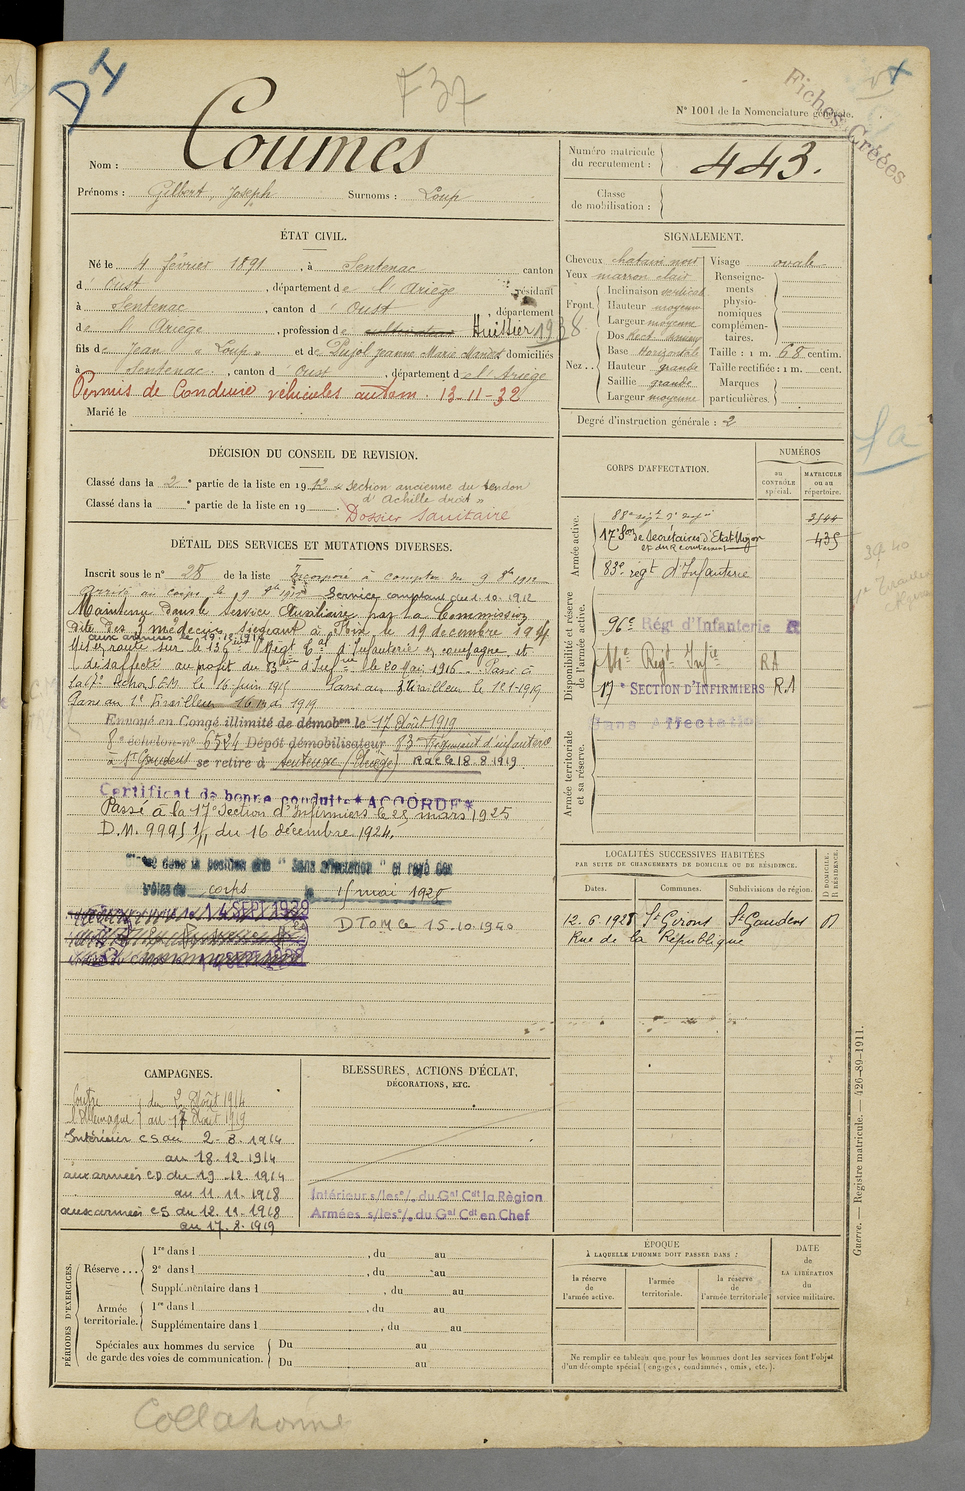 DI
F37
N° 1001 de la Nomenclature générale.
Fiches Créées
Nom : Coumes
Prénoms : Gilbert, Joseph Surnoms : Loup
Numéro matricule du recrutement : 443.
Classe de mobilisation :
ÉTAT CIVIL.
Né le 4 février 1891, à Sentenac canton
d'Oust, département de l'Ariège résidant
à Sentenac, canton d'Oust, département
de l'Ariège, profession de Huissier 1938
fils de Jean "Loup" et de Pujol Jeanne Marie domiciliés
à Sentenac, canton d'Oust, département de l'Ariège
Permis de Conduire véhicules autom. 13-11-32
Marié le
SIGNALEMENT.
Cheveux chatain noir
Yeux marron clair
Front. Inclinaison verticale
Hauteur moyenne
Largeur moyenne
Nez... Dos Rect.
Base Horizontale
Hauteur grande
Saillie grande
Largeur moyenne
Visage ovale
Renseignements physionomiques complémentaires.
Taille : 1 m. 68 centim.
Taille rectifiée : 1 m. cent.
Marques particulières.
Degré d'instruction générale : 2
DÉCISION DU CONSEIL DE REVISION.
Classé dans la 2e partie de la liste en 1912 "Section ancienne du tendon
d'Achille droit"
Classé dans la e partie de la liste en 19
Dossier Sanitaire
DÉTAIL DES SERVICES ET MUTATIONS DIVERSES.
Inscrit sous le n° 28 de la liste Incorporé à compter du 9 8bre 1912
Arrivé au corps le 9 8bre 1912 Service comptant du 1.10.1912
Maintenu dans le service Auxiliaire par la Commission
dite des 3 médecins siégeant à Foix le 19 decembre 1914
aux armées le 19.12.1914
Mis en route sur le 136e Régt d'Infanterie en campagne et
désaffecté au profit du 83ème d'Infrie le 20 Mai 1916. Passé à
la 17e section S.E.M. le 16 juin 191 Passé au Tirailleur le 1-1-1919
Passé au Tirailleur 1919
Envoyé en Congé illimité de démobon le 17 Août 1919
8e échelon n° 6524 Dépôt démobilisateur 83e Régiment d'infanterie
à St Gaudens se retire à Sentenac (Ariège) R.d.C le 18.8.1919
Certificat de bonne conduite ACCORDÉ
Passé à la 17e Section d'Infirmiers le 25 mars 1925
D.M. 9995 1/11 du 16 décembre 1924.
Classé dans la position dite "Sans affectation" et rayé des
contrôles du corps le 15 mai 1928
14 SEPT 1939
D T O M C 15.10.1940
CORPS D'AFFECTATION.
NUMÉROS
au CONTRÔLE spécial.
MATRICULE ou au répertoire.
Armée active.
88e régt d'inf 3544
17e Son de Secrétaires d'Etat Major 435
et du Recrutement
83e régt d'Infanterie
Disponibilité et réserve de l'armée active.
96e Régt d'Infanterie
Régt Infie RA
17e SECTION D'INFIRMIERS RA
Armée territoriale et sa réserve.
Sans Affectation
39 40
LOCALITÉS SUCCESSIVES HABITÉES
PAR SUITE DE CHANGEMENTS DE DOMICILE OU DE RÉSIDENCE.
Dates. Communes. Subdivisions du région. D domicile. R résidence.
12.6.1928 St Girons St Gaudens D
Rue de la République
CAMPAGNES.
Contre l'Allemagne du 2 Août 1914
au 17 Août 1919
Intérieur CS au 2-8-1914
au 18.12.1914
aux armées CD du 19.12.1914
au 11.11.1918
aux armées CS du 12.11.1918
au 17.8.1919
BLESSURES, ACTIONS D'ÉCLAT, DÉCORATIONS, ETC.
Intérieur s/les°/. du Gal Cdt la Région
Armées s/les°/. du Gal Cdt en Chef
PÉRIODES D'EXERCICES.
Réserve... 1re dans l , du au
2e dans l , du au
Supplémentaire dans l , du au
Armée territoriale. 1re dans l , du au
Supplémentaire dans l , du au
Spéciales aux hommes du service de garde des voies de communication. Du au
Du au
ÉPOQUE
À LAQUELLE L'HOMME DOIT PASSER DANS :
la réserve de l'armée active.
l'armée territoriale.
la réserve de l'armée territoriale
DATE DE LA LIBÉRATION du service militaire.
Ne remplir ce tableau que pour les hommes dont les services font l'objet
d'un décompte spécial (engagés, condamnés, omis, etc.).
Guerre. — Registre matricule. — 426-89-1911.